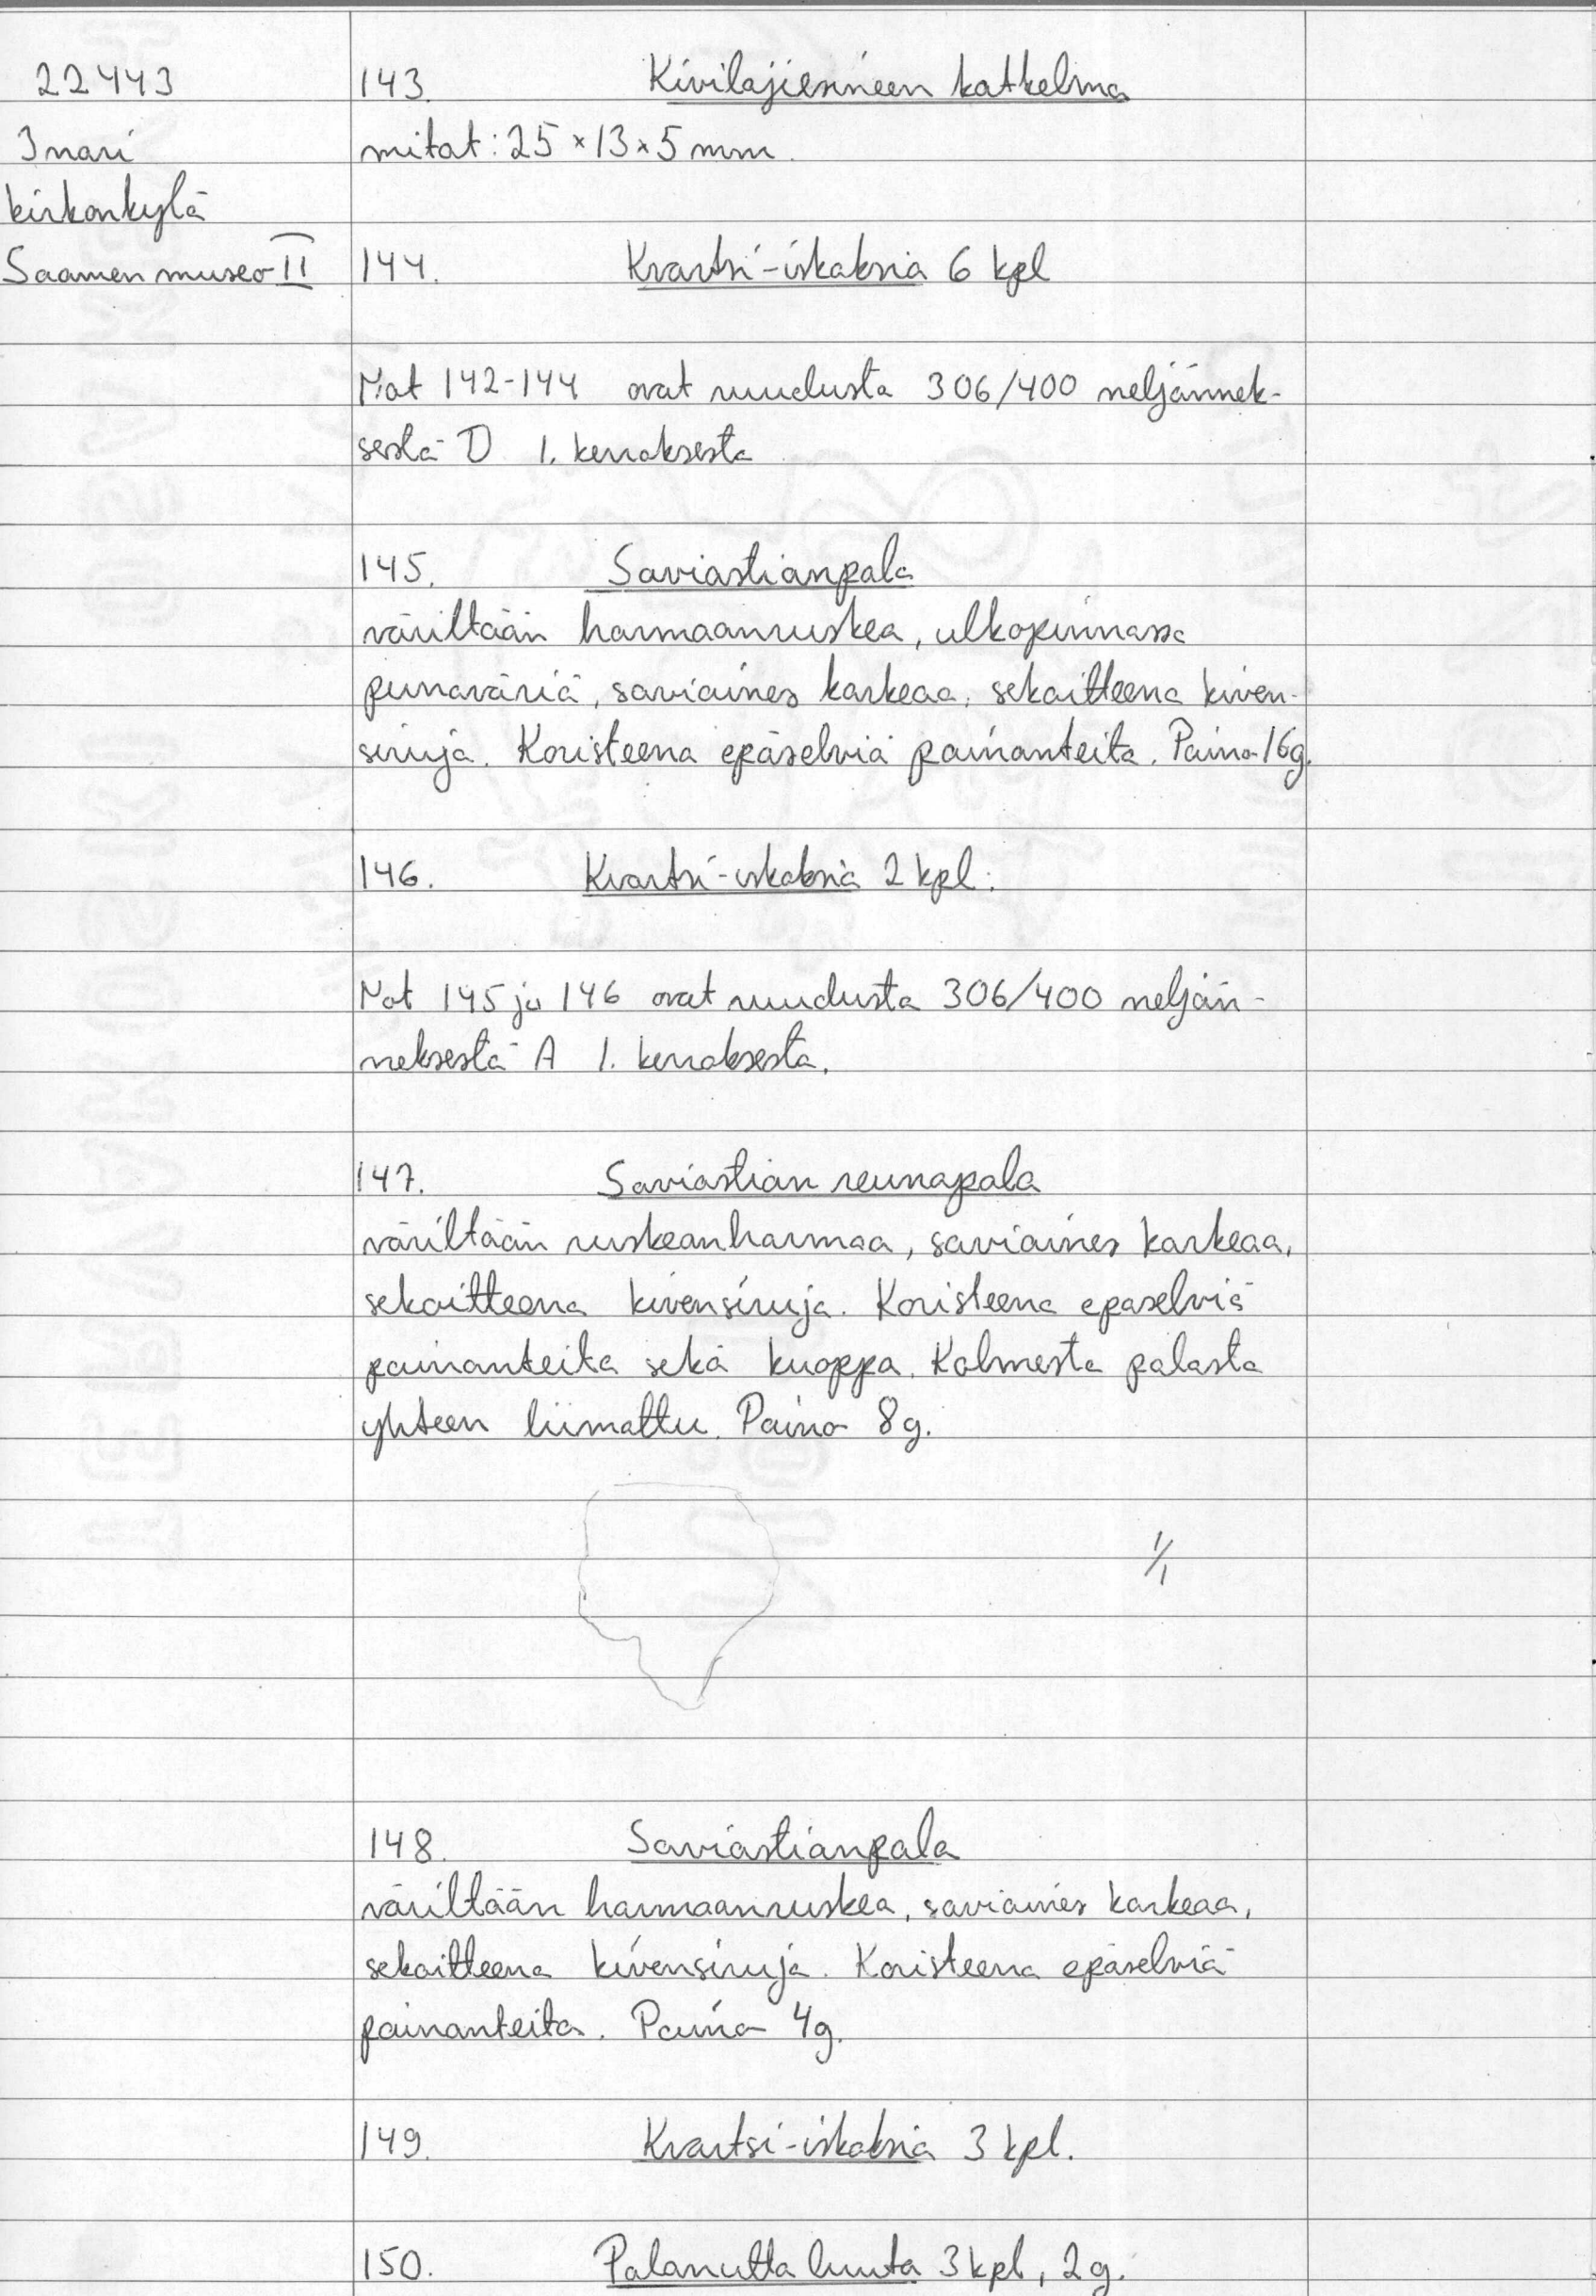 22443
Inari
kirkonkylä
Saamen museo II
143. Kivilajiesineen katkelma
mitat: 25 x 13 x 5 mm.
144. Kvartsi-iskoksia 6 kpl
Not 142-144 ovat ruudusta 306/400 neljännek-
sestä D 1. kerroksesta
145. Saviastianpala
väriltään harmaanruskea, ulkopinnassa
punaväriä, saviaines karkeaa, sekoitteena kiven-
siruja. Koristeena epäselviä painanteita. Paino 16g.
146. Kvartsi-iskoksia 2 kpl.
Not 145 ja 146 ovat ruudusta 306/400 neljän-
neksestä A 1. kerroksesta.
147. Saviastian reunapala
väriltään ruskeanharmaa, saviaines karkeaa,
sekoitteena kivensiruja. Koristeena epäselviä
painanteita sekä kuoppa. Kolmesta palasta
yhteen liimattu. Paino 8g.
1/1
148. Saviastianpala
väriltään harmaanruskea, saviaines karkeaa,
sekoitteena kivensiruja. Koristeena epäselviä
painanteita. Paino 4g.
149. Kvartsi-iskoksia 3 kpl.
150. Palanutta luuta 3 kpl, 2g.